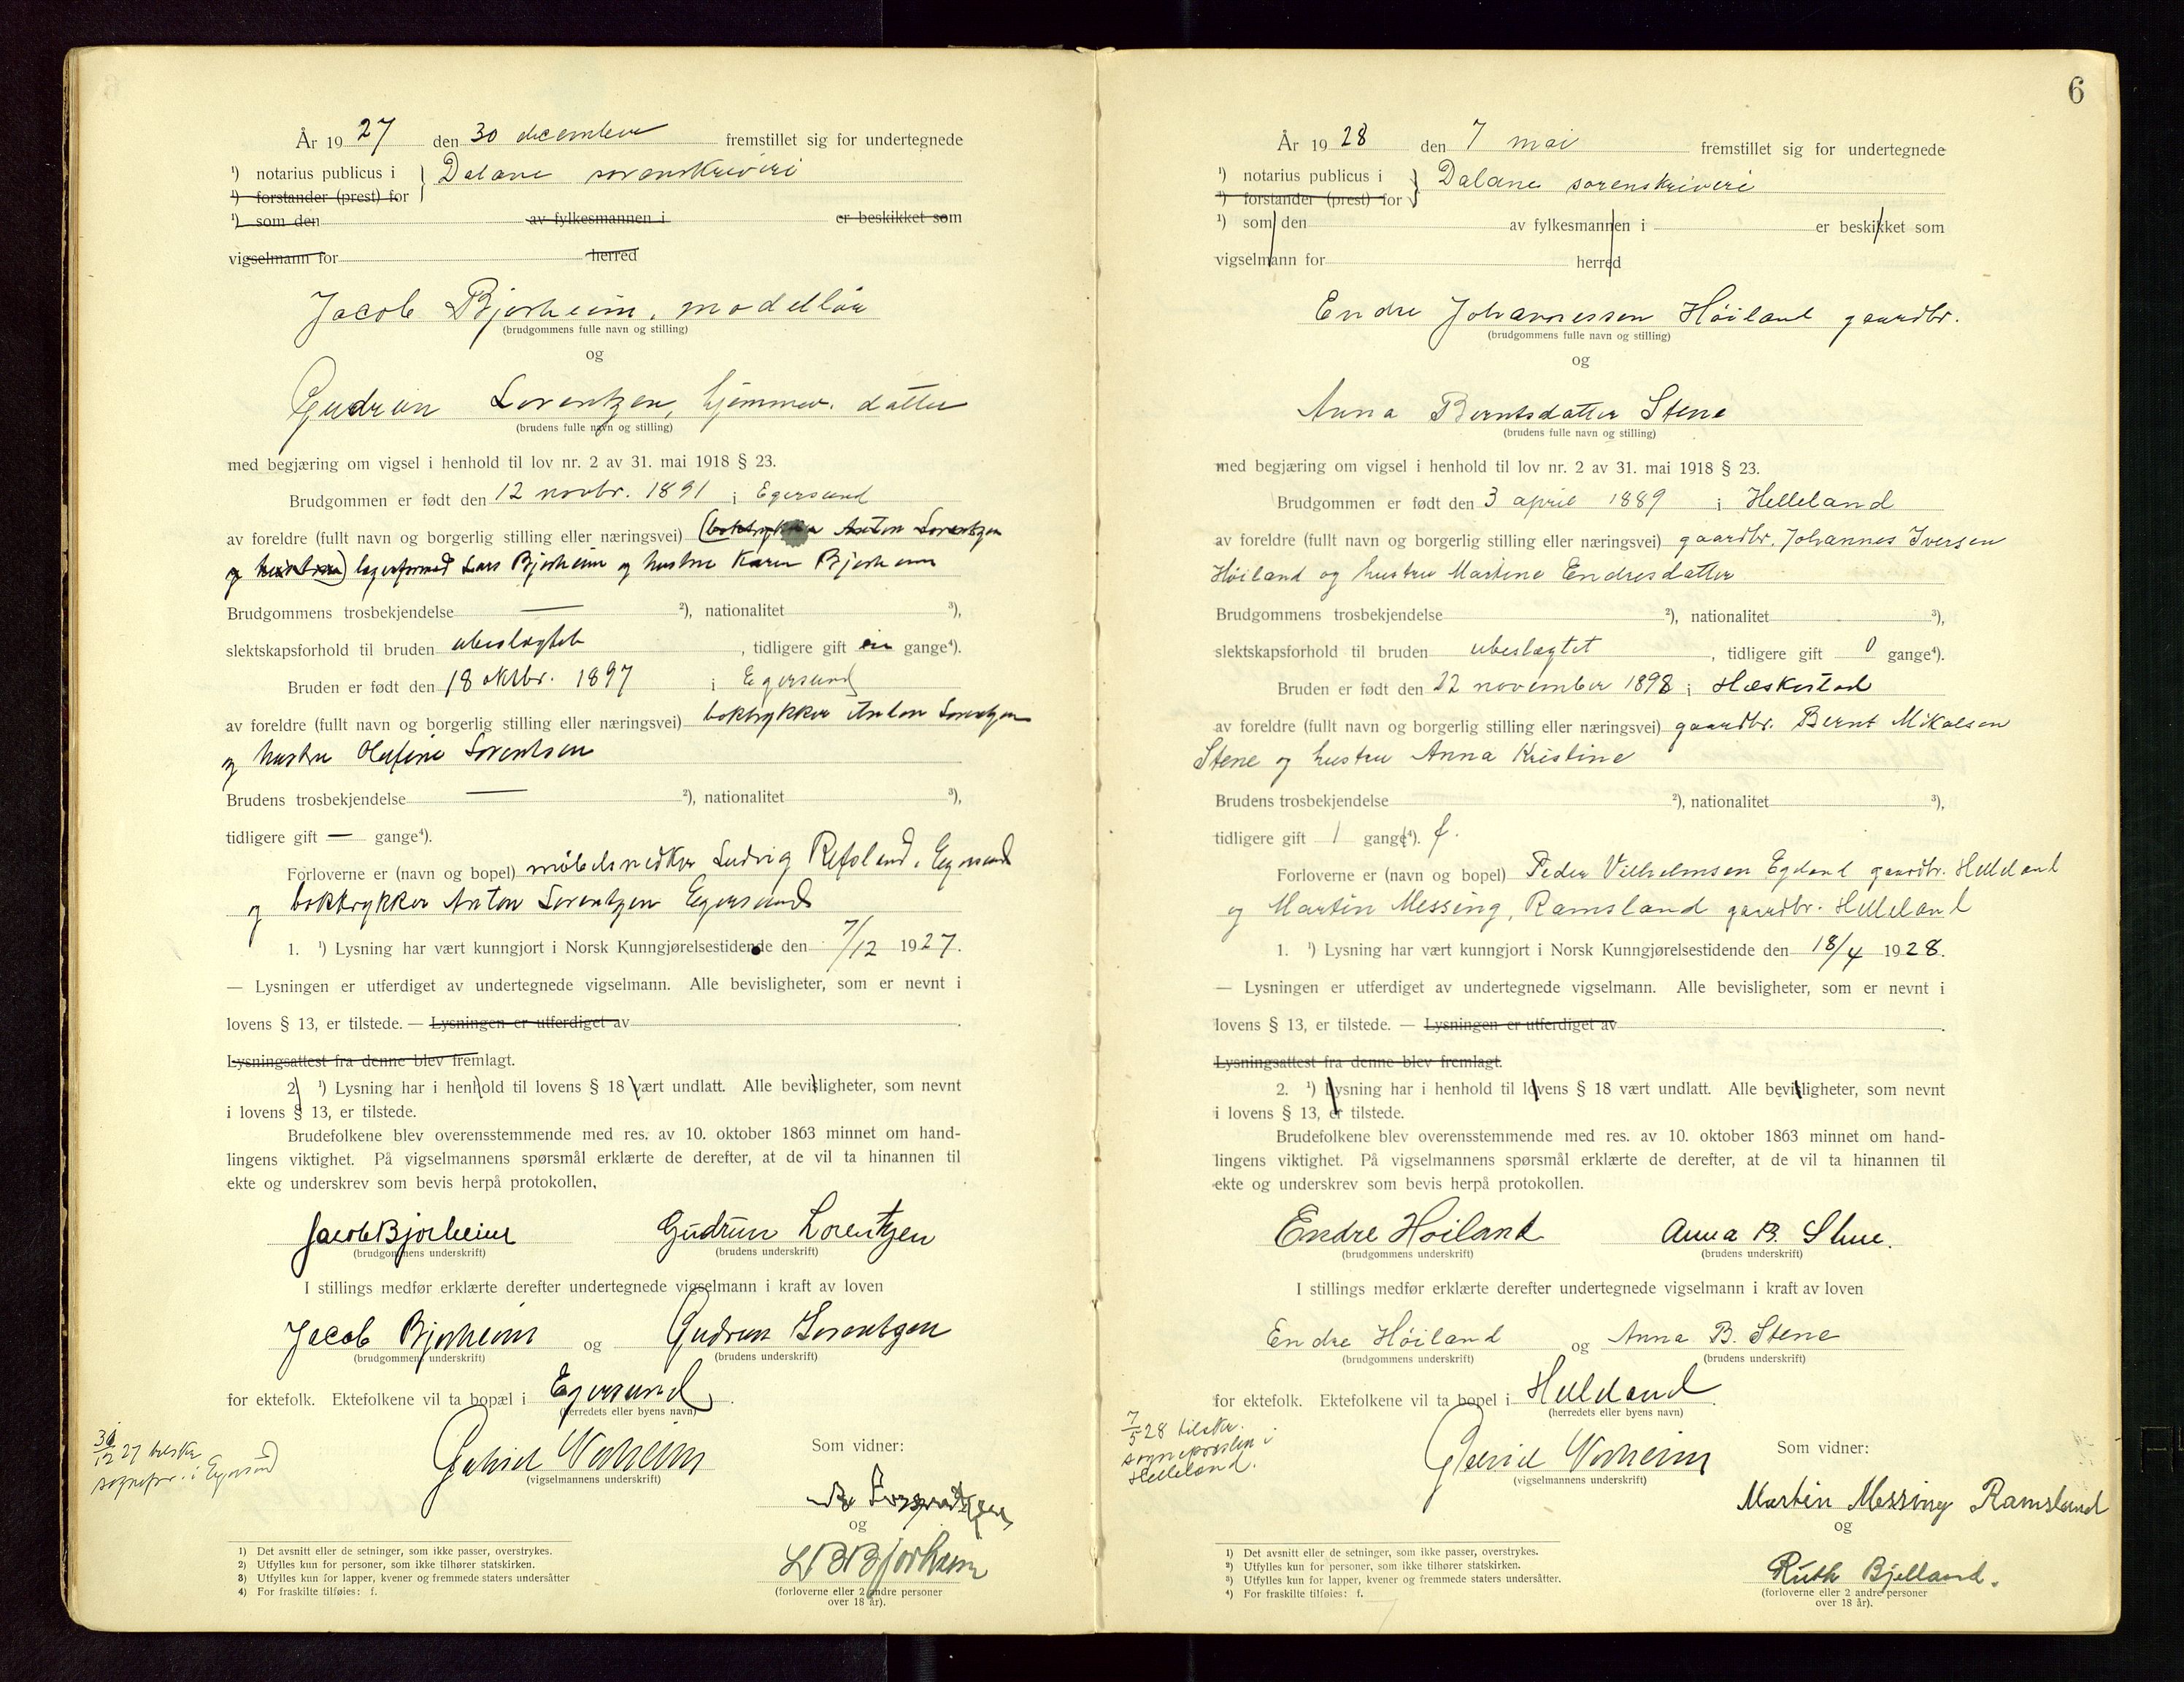 År 19 27 den 30 december fremstillet sig for undertegnede
¹) notarius publicus i } Dalane sorenskriveri
¹) forstander (prest) for
¹) som den av fylkesmannen i er beskikket som
vigselmann for herred
Jacob Bjorheim, modellør
(brudgommens fulle navn og stilling)
og
Gudrun Lorentzen, hjemmev. datter
(brudens fulle navn og stilling)
med begjæring om vigsel i henhold til lov nr. 2 av 31. mai 1918 § 23.
Brudgommen er født den 12 novbr. 1891 i Egersund
av foreldre (fullt navn og borgerlig stilling eller næringsvei) (boktrykker Anton Lorentzen
og hustru) lagerformand Lars Bjorheim og hustru Karen Bjorheim
Brudgommens trosbekjendelse — ²), nationalitet ³),
slektskapsforhold til bruden ubeslægtet, tidligere gift en gange⁴).
Bruden er født den 18 oktbr. 1897 i Egersund
av foreldre (fullt navn og borgerlig stilling eller næringsvei) boktrykker Anton Lorentzen
og hustru Olufine Lorentsen
Brudens trosbekjendelse — ²), nationalitet ³),
tidligere gift — gange⁴).
Forloverne er (navn og bopel) møbelsnedker Ludvig Refsland, Egersund
og boktrykker Anton Lorentzen Egersund
1. ¹) Lysning har vært kunngjort i Norsk Kunngjørelsestidende den 7/12 1927.
— Lysningen er utferdiget av undertegnede vigselmann. Alle bevisligheter, som er nevnt i
lovens § 13, er tilstede. — Lysningen er utferdiget av .
Lysningsattest fra denne blev fremlagt.
2. ¹) Lysning har i henhold til lovens § 18 vært undlatt. Alle bevisligheter, som nevnt
i lovens § 13, er tilstede.
Brudefolkene blev overensstemmende med res. av 10. oktober 1863 minnet om hand-
lingens viktighet. På vigselmannens spørsmål erklærte de derefter, at de vil ta hinannen til
ekte og underskrev som bevis herpå protokollen,
Jacob Bjorheim Gudrun Lorentzen
(brudgommens underskrift) (brudens underskrift)
I stillings medfør erklærte derefter undertegnede vigselmann i kraft av loven
Jacob Bjorheim og Gudrun Lorentzen
(brudgommens underskrift) (brudens underskrift)
for ektefolk. Ektefolkene vil ta bopæl i Egersund.
(herredets eller byens navn)
30/12 27 tilskr.
sognepr. i Egersund
Gabriel Vorheim
(vigselmannens underskrift)
Som vidner:
og
L B Bjorheim
(forloverne eller 2 andre personer
over 18 år).
1) Det avsnitt eller de setninger, som ikke passer, overstrykes.
2) Utfylles kun for personer, som ikke tilhører statskirken.
3) Utfylles kun for lapper, kvener og fremmede staters undersåtter
4) For fraskilte tilføies: f.
6
År 19 28 den 7 mai fremstillet sig for undertegnede
¹) notarius publicus i } Dalane sorenskriveri
¹) forstander (prest) for
¹) som den av fylkesmannen i er beskikket som
vigselmann for herred
Endre Johannessen Høiland gaardbr.
(brudgommens fulle navn og stilling)
og
Anna Berntsdatter Stene
(brudens fulle navn og stilling)
med begjæring om vigsel i henhold til lov nr. 2 av 31. mai 1918 § 23.
Brudgommen er født den 3 april 1889 i Helleland
av foreldre (fullt navn og borgerlig stilling eller næringsvei) gaardbr. Johannes Iversen
Høiland og hustru Martine Endresdatter
Brudgommens trosbekjendelse ²), nationalitet ³),
slektskapsforhold til bruden ubeslægtet, tidligere gift 0 gange⁴).
Bruden er født den 22 november 1898 i Hæskestad
av foreldre (fullt navn og borgerlig stilling eller næringsvei) gaardbr. Bernt Mikalsen
Stene og hustru Anna Kristine
Brudens trosbekjendelse ²), nationalitet ³),
tidligere gift 1 gange⁴). f.
Forloverne er (navn og bopel) Peder Vilhelmsen Egeland gaardbr. Helleland
og Martin Messing, Ramsland gaardbr. Helleland
1. ¹) Lysning har vært kunngjort i Norsk Kunngjørelsestidende den 18/4 1928.
— Lysningen er utferdiget av undertegnede vigselmann. Alle bevisligheter, som er nevnt i
lovens § 13, er tilstede. — Lysningen er utferdiget av .
Lysningsattest fra denne blev fremlagt.
2. ¹) Lysning har i henhold til lovens § 18 vært undlatt. Alle bevisligheter, som nevnt
i lovens § 13, er tilstede.
Brudefolkene blev overensstemmende med res. av 10. oktober 1863 minnet om hand-
lingens viktighet. På vigselmannens spørsmål erklærte de derefter, at de vil ta hinannen til
ekte og underskrev som bevis herpå protokollen.
Endre Hoiland Anna B. Stene.
(brudgommens underskrift) (brudens underskrift)
I stillings medfør erklærte derefter undertegnede vigselmann i kraft av loven
Endre Høiland og Anna B. Stene
(brudgommens underskrift) (brudens underskrift)
for ektefolk. Ektefolkene vil ta bopel i Helleland.
(herredets eller byens navn)
7/5 28 tilskr.
sognepresten i
Helleland.
Gabriel Vorheim
(vigselmannens underskrift)
Som vidner:
Martin Messing Ramsland
og
Ruth Bjelland.
(forloverne eller 2 andre personer
over 18 år).
¹) Det avsnitt eller de setninger, som ikke passer, overstrykes.
²) Utfylles kun for personer, som ikke tilhører statskirken.
³) Utfylles kun for lapper, kvener og fremmede staters undersåtter.
⁴) For fraskilte tilføies: f.